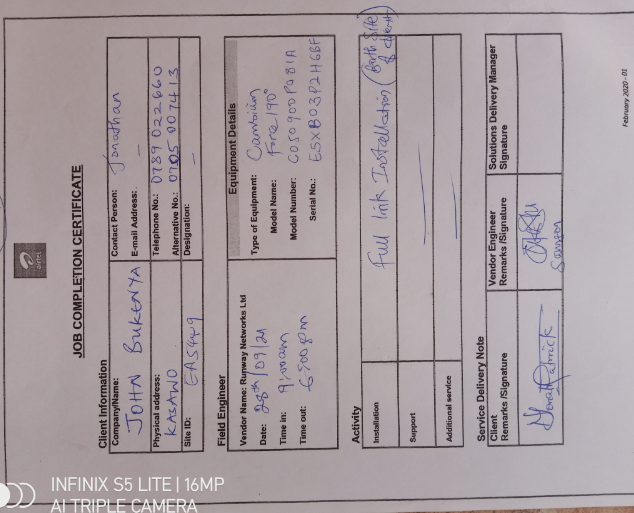 airtel
JOB COMPLETION CERTIFICATE
Client Information
Company/Name: JOHN BUKENYA
Contact Person: Jonathan
E-mail Address: —
Physical address: KASAWO
Telephone No.: 0789 022660
Alternative No.: 0705 007413
Site ID: EAS449
Designation: —
Field Engineer
Vendor Name: Runway Networks Ltd
Date: 28th/09/21
Time in: 9:00am
Time out: 6:00pm
Equipment Details
Type of Equipment: Cambium
Model Name: Force 190°
Model Number: C050900P081A
Serial No.: E5XB03P2H6BF
Activity
Installation
Full link Installation (Both Site & client)
Support
Additional service
Service Delivery Note
Client
Remarks /Signature
Vendor Engineer
Remarks /Signature
Solutions Delivery Manager
Signature
Patrick
Samson
February 2020 - 01
INFINIX S5 LITE | 16MP
AI TRIPLE CAMERA